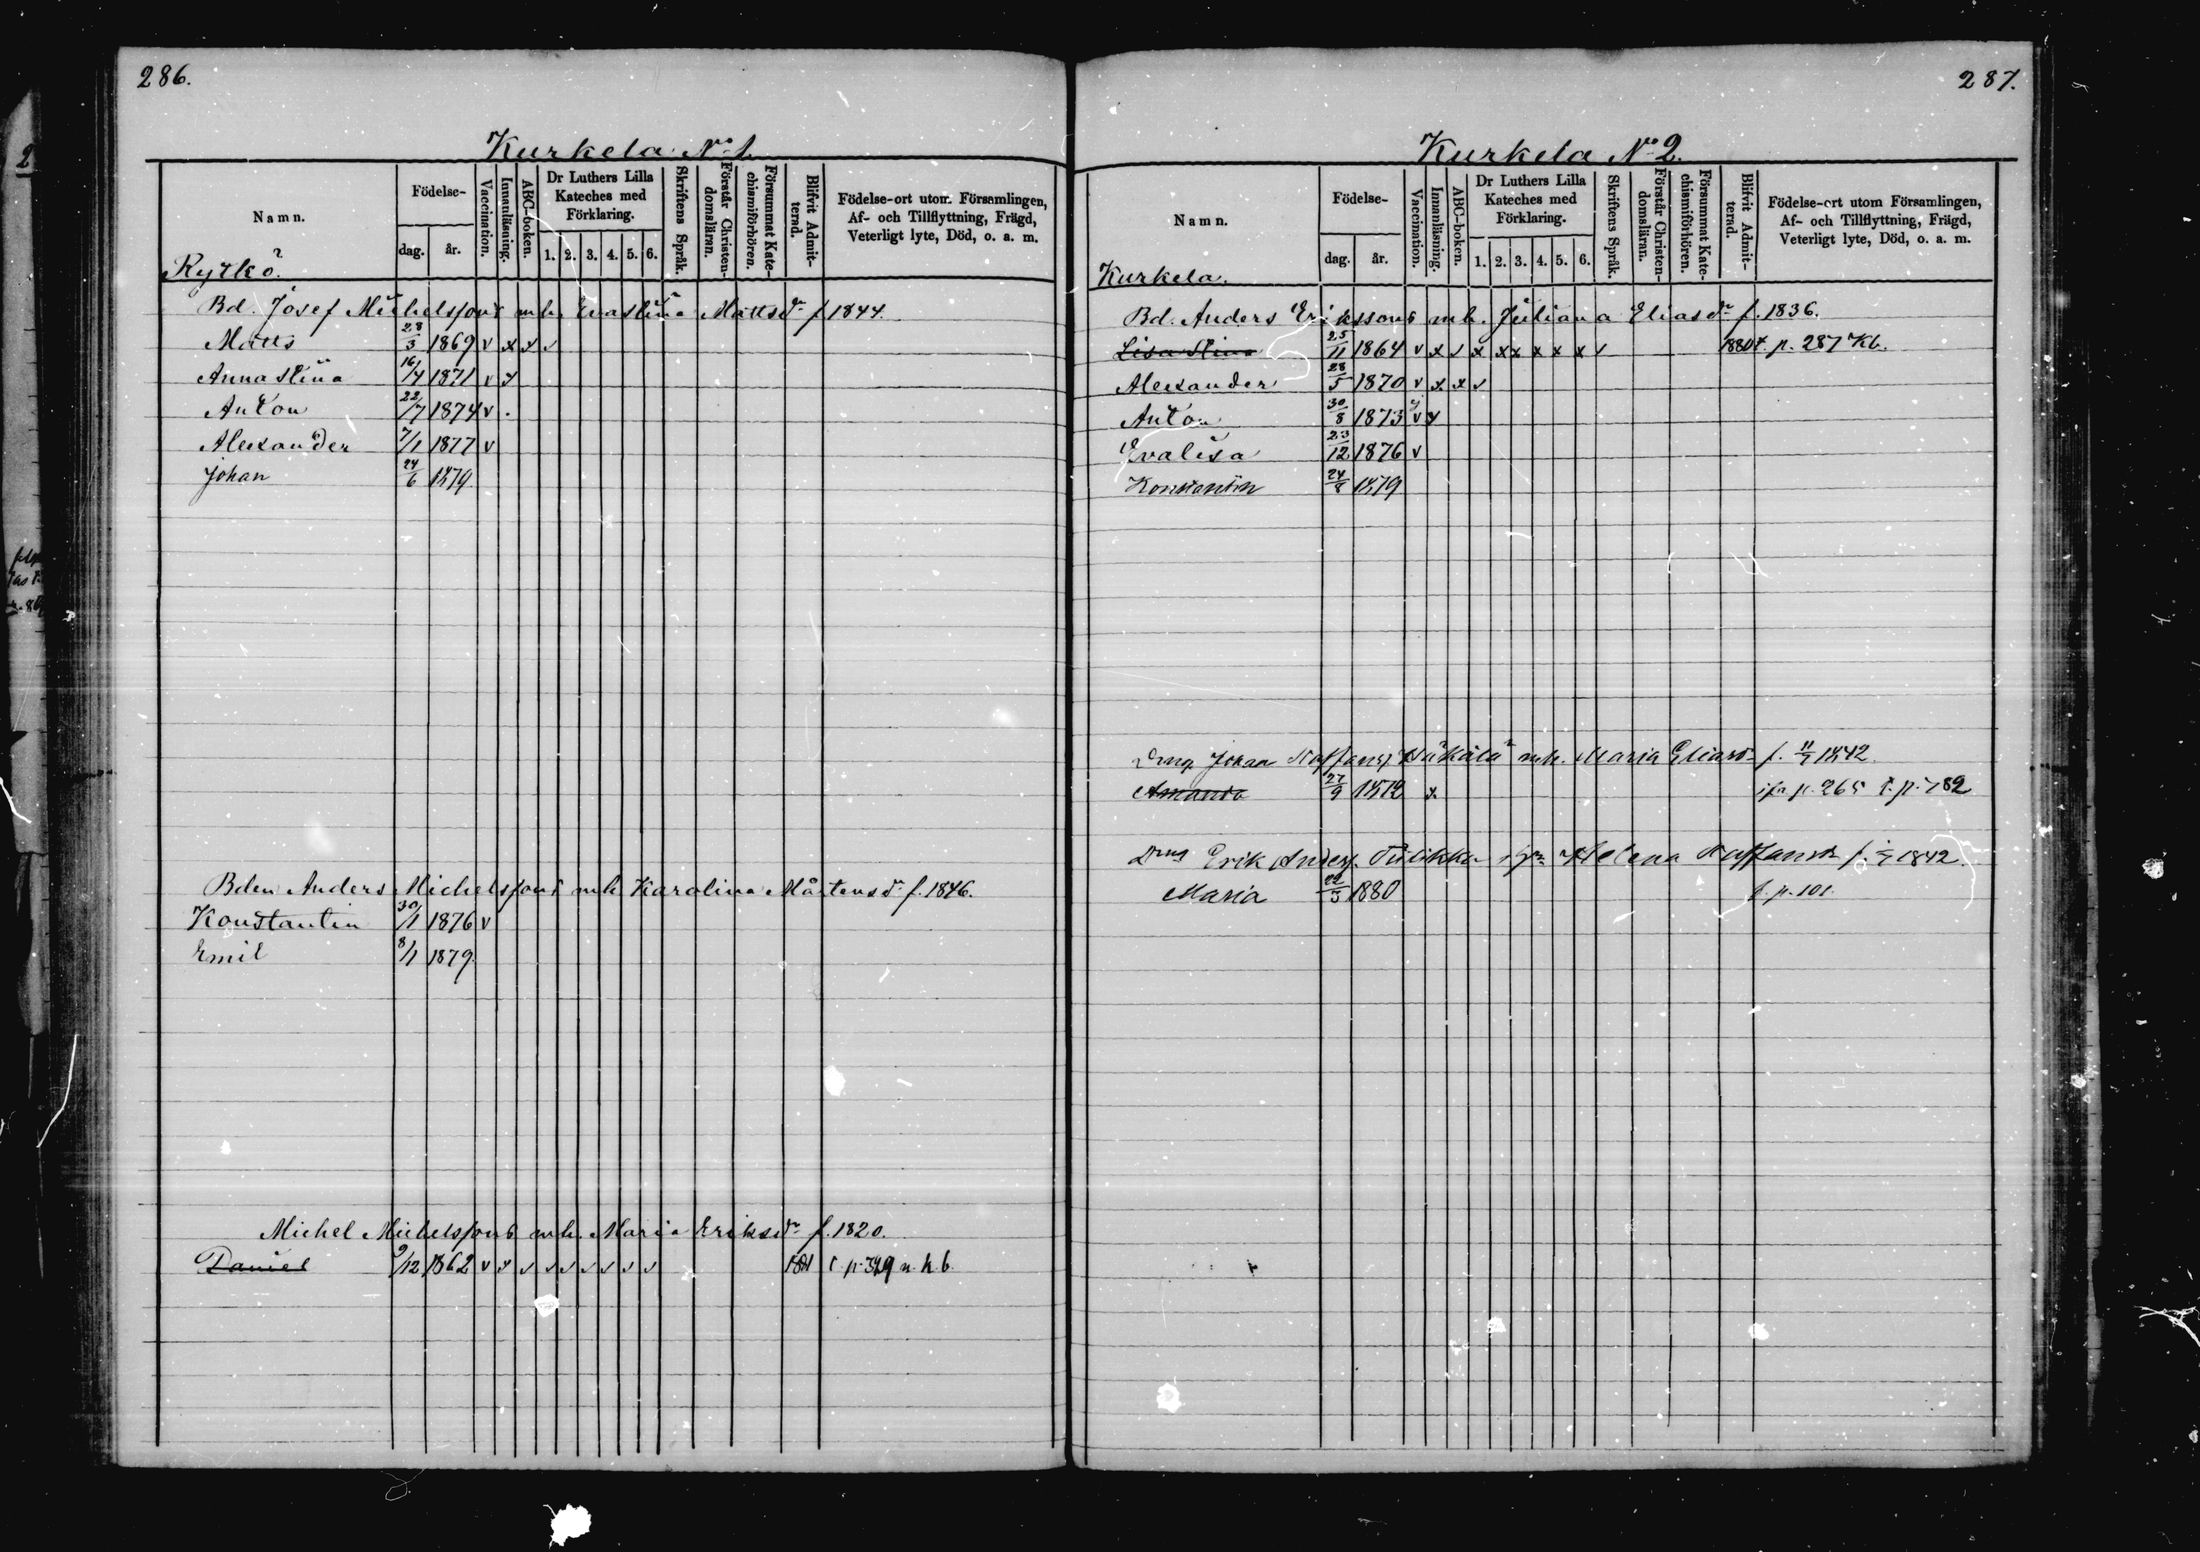 286.
Kurkela No 1.
Namn.
Födelse-
dag.
år.
Vaccination.
Innanläsning.
ABC-boken.
Dr Luthers Lilla Kateches med Förklaring.
1. 2. 3. 4. 5. 6.
Skriftens Språk.
Förstår Christendomsläran.
Försummat Katechismiförhören.
Blifvit Admitterad.
Födelse-ort utom Församlingen,
Af- och Tillflyttning, Frägd,
Veterligt lyte, Död, o. a. m.
Rytkö.
Bd. Josef Michelssons mh. Evastina Mattsdr f 1844.
Matts 28/3 1869 v x x v
Anna Stina 16/4 1871 v x
Anton 22/7 1874 v .
Alexander 7/1 1877 v
Johan 24/6 1879
Bden Anders Michelssons mh. Karolina Mårtensdr f. 1846.
Konstantin 30/1 1876 v
Emil 8/1 1879.
Michel Michelssons mh. Maria Eriksdr f. 1820.
Daniel 9/12 1862 v v v v v v v v v 1881 p. 349 n. k. b.
287.
Kurkela No 2.
Namn.
Födelse-
dag.
år.
Vaccination.
Innanläsning.
ABC-boken.
Dr Luthers Lilla Kateches med Förklaring.
1. 2. 3. 4. 5. 6.
Skriftens Språk.
Förstår Christendomsläran.
Försummat Katechismiförhören.
Blifvit Admitterad.
Födelse-ort utom Församlingen,
Af- och Tillflyttning, Frägd,
Veterligt lyte, Död, o. a. m.
Kurkela.
Bd. Anders Erikssons mh. Juliana Eliasdr f. 1836.
Lisa Stina 25/11 1864 v x v x x x x x x v 1880 p. 287 Kb.
Alexander 28/5 1870 v x x v
Anton 30/8 1873 v v
Evalisa 23/12 1876 v
Konstantin 24/8 1879
Johan mh. Maria f. 1842.
Amanda 27/9 x p. 265 p. 782
Erik Helena f. 1842.
Maria 22/3 1880 f. p. 101.